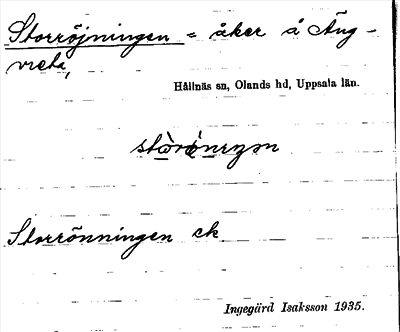 Storröjningen = åker å Äng-
vreta,
Hållnäs sn, Olands hd, Uppsala län.
Storrönningen ek
Ingegärd Isaksson 1935.